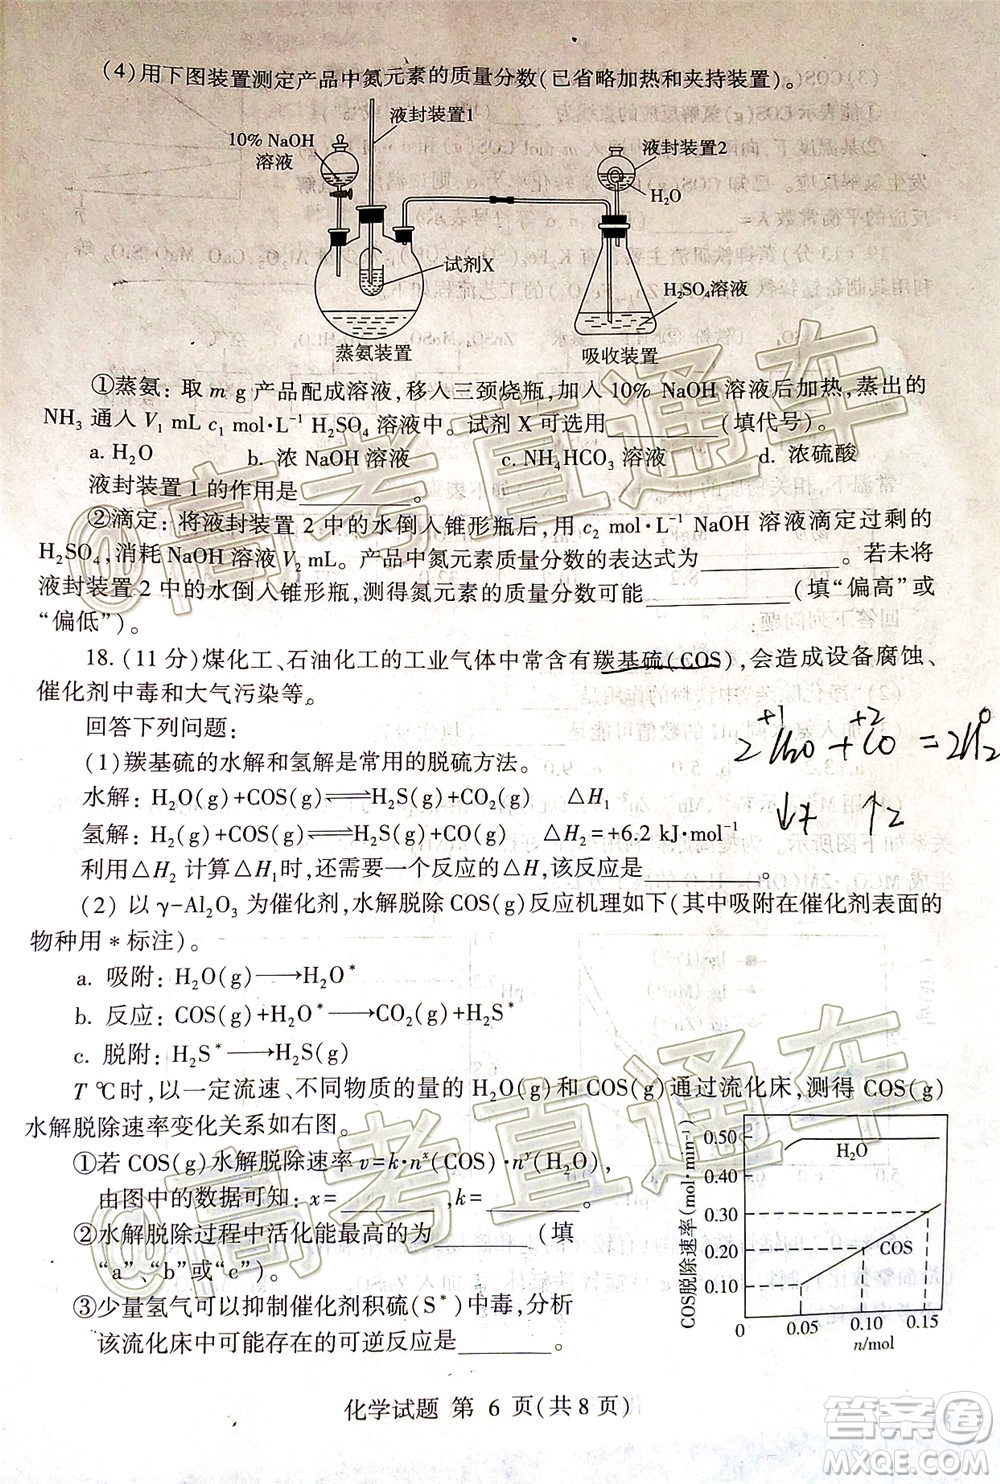 (4)用下图装置测定产品中氮元素的质量分数(已省略加热和夹持装置)。
液封装置1
10% NaOH
溶液
液封装置2
H₂O
试剂X
H₂SO₄溶液
蒸氨装置
吸收装置
①蒸氨:取 m g 产品配成溶液,移入三颈烧瓶,加入 10% NaOH 溶液后加热,蒸出的
NH₃ 通入 V₁ mL c₁ mol·L⁻¹ H₂SO₄ 溶液中。试剂 X 可选用________(填代号)。
a. H₂O b. 浓 NaOH 溶液 c. NH₄HCO₃ 溶液 d. 浓硫酸
液封装置 1 的作用是________。
②滴定:将液封装置 2 中的水倒入锥形瓶后,用 c₂ mol·L⁻¹ NaOH 溶液滴定过剩的
H₂SO₄,消耗 NaOH 溶液 V₂ mL。产品中氮元素质量分数的表达式为________。若未将
液封装置 2 中的水倒入锥形瓶,测得氮元素的质量分数可能________(填“偏高”或
“偏低”)。
18.(11 分)煤化工、石油化工的工业气体中常含有羰基硫(COS),会造成设备腐蚀、
催化剂中毒和大气污染等。
回答下列问题:
2H₂O+CO=2H₂
+1 +2 0
(1)羰基硫的水解和氢解是常用的脱硫方法。
水解:H₂O(g)+COS(g)⇌H₂S(g)+CO₂(g) △H₁
氢解:H₂(g)+COS(g)⇌H₂S(g)+CO(g) △H₂=+6.2 kJ·mol⁻¹
↑2
利用△H₂ 计算△H₁时,还需要一个反应的△H,该反应是________。
(2) 以 γ-Al₂O₃ 为催化剂,水解脱除 COS(g)反应机理如下(其中吸附在催化剂表面的
物种用 * 标注)。
a. 吸附:H₂O(g)⟶H₂O*
b. 反应:COS(g)+H₂O*⟶CO₂(g)+H₂S*
c. 脱附:H₂S*⟶H₂S(g)
T ℃时,以一定流速、不同物质的量的 H₂O(g)和 COS(g)通过流化床,测得 COS(g)
水解脱除速率变化关系如右图。
①若 COS(g)水解脱除速率 v=k·nˣ(COS)·nʸ(H₂O),
由图中的数据可知:x=________,k=________。
②水解脱除过程中活化能最高的为________(填
“a”、“b”或“c”)。
③少量氢气可以抑制催化剂积硫(S*)中毒,分析
该流化床中可能存在的可逆反应是________。
COS脱除速率(mol·min⁻¹)
0.50
0.30
0.20
0.10
0
H₂O
COS
0.05 0.10 0.15
n/mol
化学试题 第 6 页(共 8 页)
@高考直通车
@高考直通车
答案圈
MXQE.COM